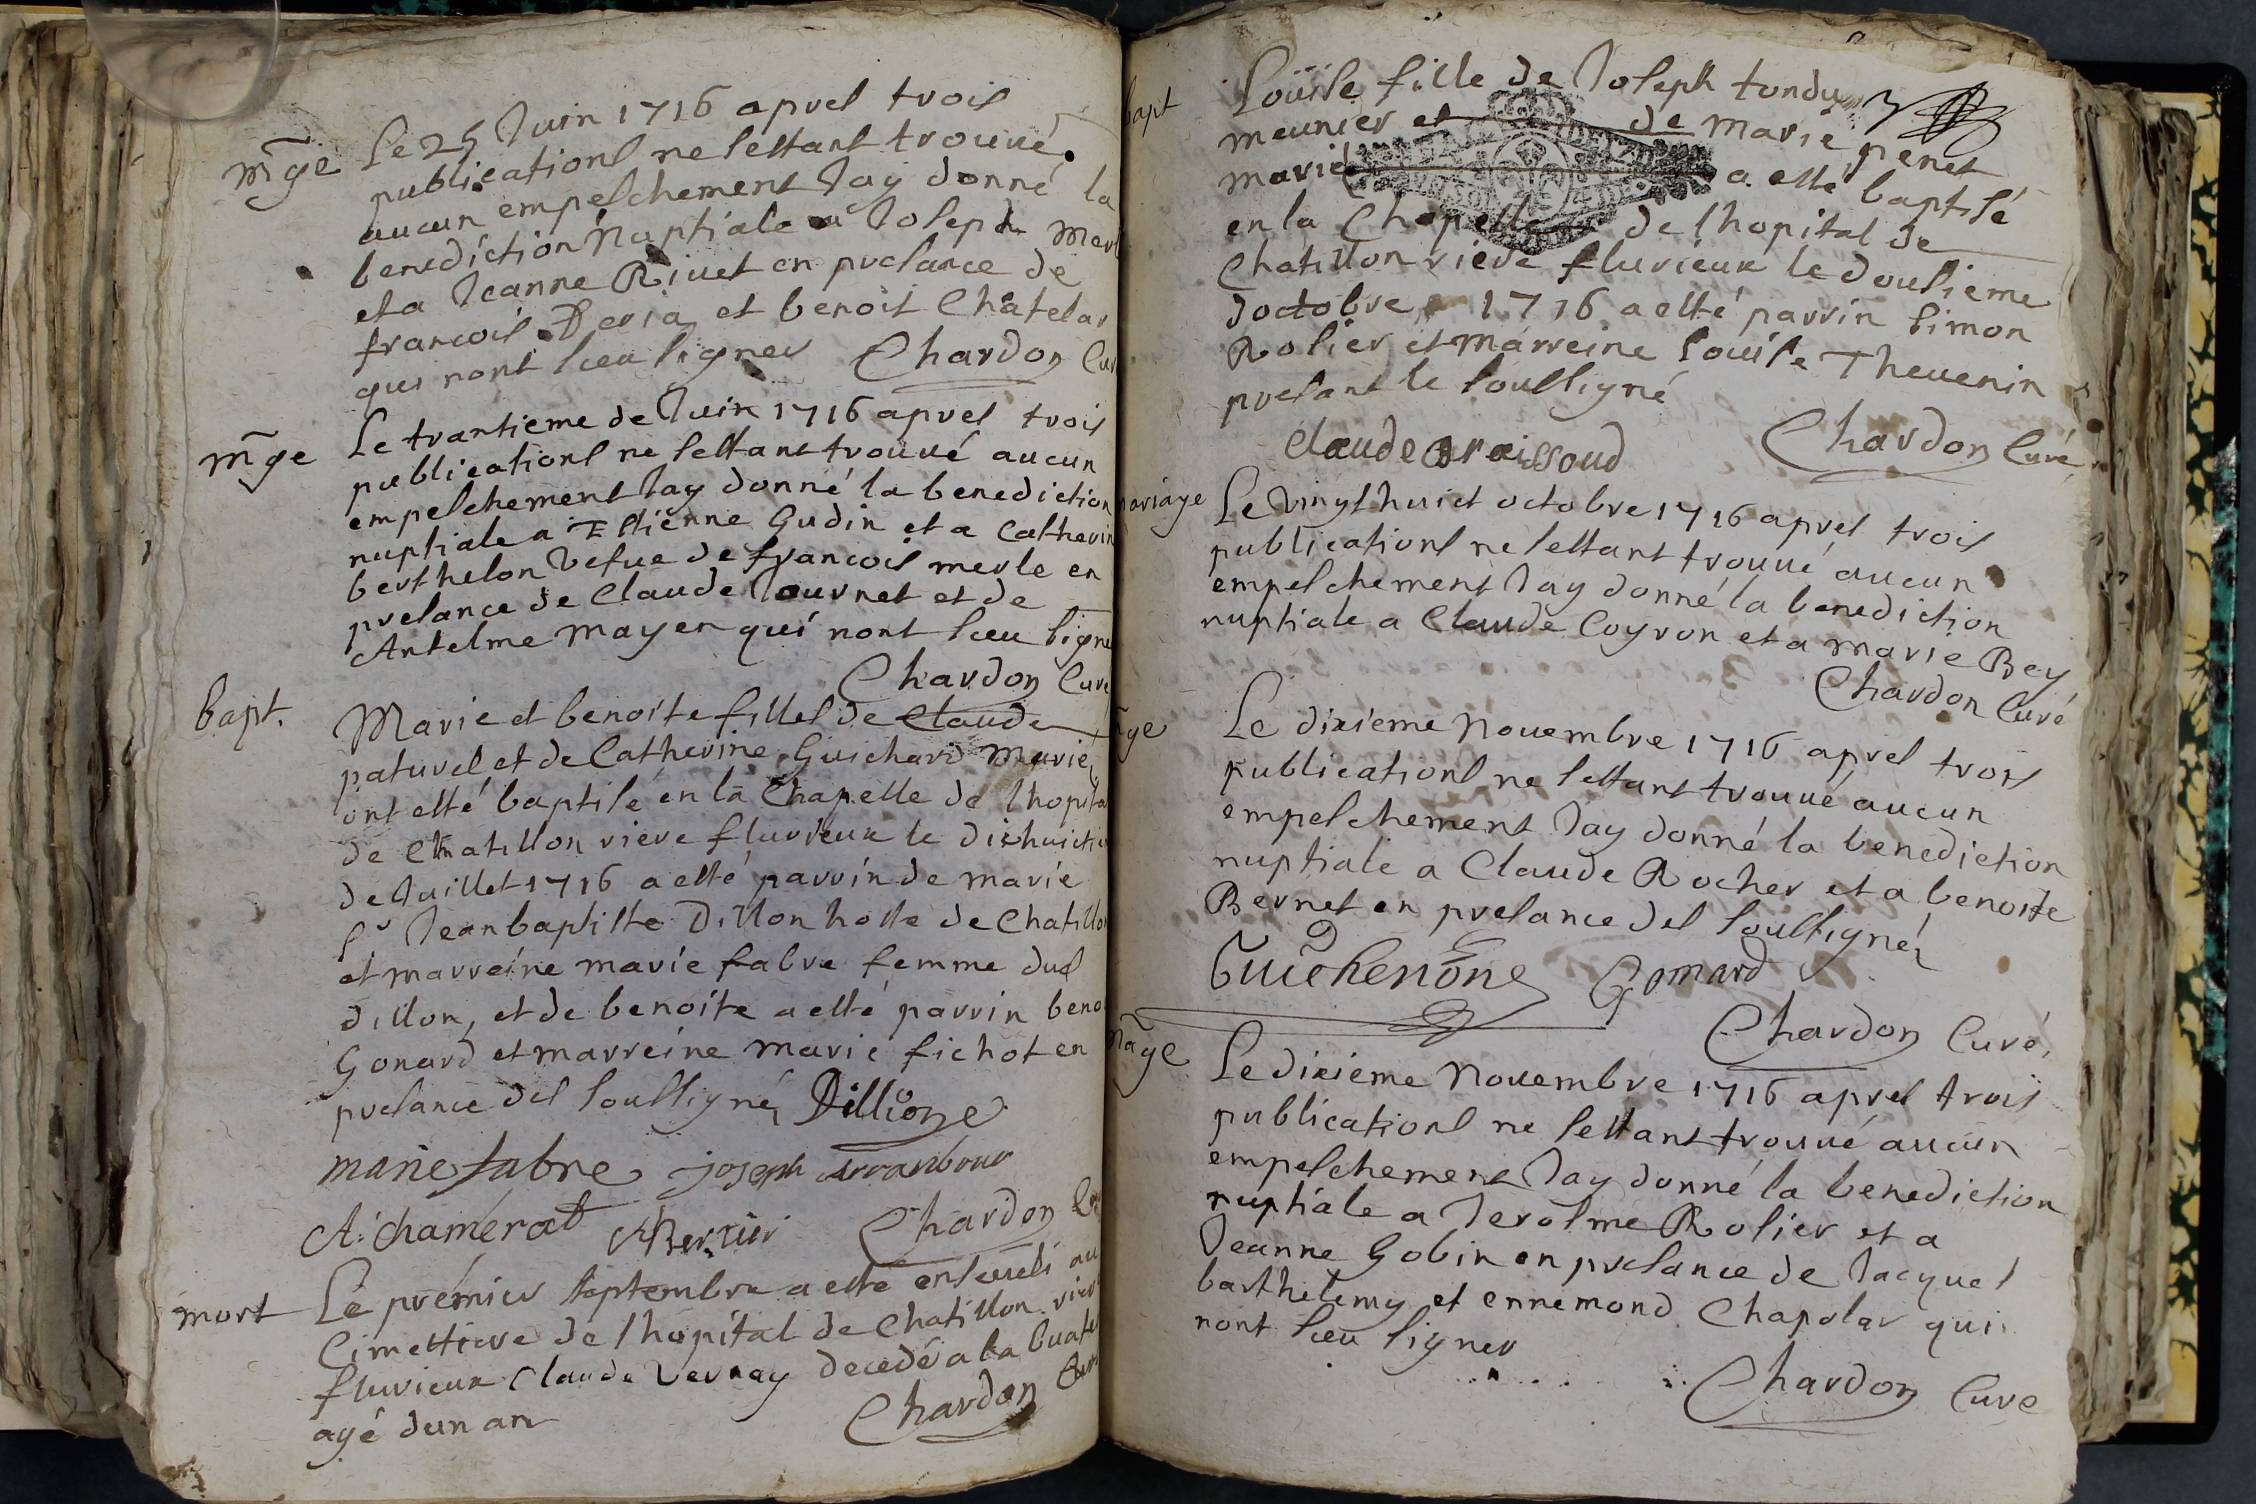 mge Le 25 Juin 1716 apres trois
publications ne sestant trouué
aucun empeschement Jay donné la
benediction Nuptiale a Joseph
et a Jeanne Riuet en presance de
francois et benoit Chatelar
qui nont sceu signer Chardon Cur
mge Le trantieme de Juin 1716 apres trois
publications ne sestant trouué aucun
empeschement Jay donné la benediction
nuptiale a Estienne Gudin et a Catherin
berthelon Vefue de francois merle en
presance de Claude Journet et de
Antelme mayen qui nont sceu signe
Chardon Curé
bapt. Marie et benoite filles de Claude
paturel et de Catherine Guichard Mariés
ont esté baptisé en la Chapelle de lhopita
de Chatillon riere flurieux le dixhuictie
de Juillet 1716 a esté parrin de marie
sr Jean baptiste Dillon hoste de Chatillon
et marreine marie fabre femme dud
dillon, et de benoite a esté parrin beno
Gonard et marreine marie fichot en
presance des soussignés Dillione
marie fabre joseph
A. chamerat Chardon
mort Le premier septembre a esté enseueli au
Cimettiere de lhopital de Chatillon rier
flurieux Claude Vernay decedé a la
agé dun an Chardon
bapt Louise fille de Joseph tondu
meunier et de marie penet
mariés a esté baptisé
en la Chapelle de lhopital de
Chatillon riere flurieux le dousieme
doctobre 1716 a esté parrin Simon
Rosier et marreine Louise Theuenin
presant le soussigné
Claude Braissoud Chardon Curé
mariage Le vingthuict octobre 1716 apres trois
publications ne sestant trouué aucun
empeschement Jay donné la benediction
nuptiale a Claude Coyron et a marie Bey
Chardon Curé
mge Le dixieme Nouembre 1716 apres trois
publications ne sestant trouué aucun
empeschement Jay donné la benediction
nuptiale a Claude Rocher et a benoite
Bernet en presance des soussignés
Guichenone Gonard
Chardon Curé
mage Le dixieme Nouembre 1716 apres trois
publications ne sestant trouué aucun
empeschement Jay donné la benediction
nuptiale a Jerosme Rosier et a
Jeanne Gobin en presance de Jacques
barthelemy et ennemond Chapolar qui
nont sceu signer
Chardon Curé